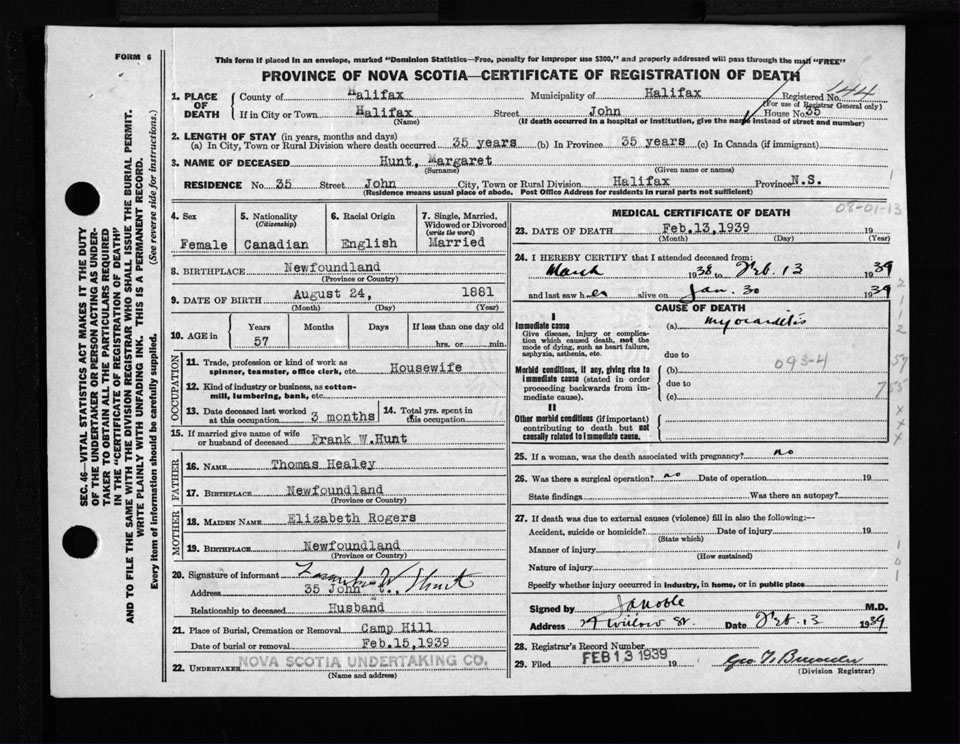 FORM 6
This form if placed in an envelope, marked "Dominion Statistics—Free, penalty for improper use $300," and properly addressed will pass through the mail "FREE"
PROVINCE OF NOVA SCOTIA—CERTIFICATE OF REGISTRATION OF DEATH
SEC. 46—VITAL STATISTICS ACT MAKES IT THE DUTY
OF THE UNDERTAKER OR PERSON ACTING AS UNDER-
TAKER TO OBTAIN ALL THE PARTICULARS REQUIRED
IN THE "CERTIFICATE OF REGISTRATION OF DEATH"
AND TO FILE THE SAME WITH THE DIVISION REGISTRAR WHO SHALL ISSUE THE BURIAL PERMIT.
WRITE PLAINLY WITH UNFADING INK. THIS IS A PERMANENT RECORD.
Every item of information should be carefully supplied. (See reverse side for instructions.)
1. PLACE OF DEATH County of Halifax Municipality of Halifax Registered No. 144
(For use of Registrar General only)
If in City or Town Halifax Street John House No. 35
(Name) (If death occurred in a hospital or institution, give the name instead of street and number)
2. LENGTH OF STAY (in years, months and days)
(a) In City, Town or Rural Division where death occurred 35 years (b) In Province 35 years (c) In Canada (if immigrant)
3. NAME OF DECEASED Hunt, Margaret
(Surname) (Given name or names)
RESIDENCE No. 35 Street John City, Town or Rural Division Halifax Province N.S.
(Residence means usual place of abode. Post Office Address for residents in rural parts not sufficient)
4. Sex
Female
5. Nationality
(Citizenship)
Canadian
6. Racial Origin
English
7. Single, Married,
Widowed or Divorced
(write the word)
Married
8. BIRTHPLACE Newfoundland
(Province or Country)
9. DATE OF BIRTH August 24, 1881
(Month) (Day) (Year)
10. AGE in Years Months Days If less than one day old
57 hrs. or min.
OCCUPATION
11. Trade, profession or kind of work as
spinner, teamster, office clerk, etc. Housewife
12. Kind of industry or business, as cotton-
mill, lumbering, bank, etc.
13. Date deceased last worked
at this occupation 3 months
14. Total yrs. spent in
this occupation
15. If married give name of wife
or husband of deceased Frank W.Hunt
FATHER
16. NAME Thomas Healey
17. BIRTHPLACE Newfoundland
(Province or Country)
MOTHER
18. MAIDEN NAME Elizabeth Rogers
19. BIRTHPLACE Newfoundland
(Province or Country)
20. Signature of informant Frank W. Hunt
Address 35 John
Relationship to deceased Husband
21. Place of Burial, Cremation or Removal Camp Hill
Date of burial or removal Feb.15,1939
22. UNDERTAKER NOVA SCOTIA UNDERTAKING CO.
(Name and address)
MEDICAL CERTIFICATE OF DEATH
08-01-13
23. DATE OF DEATH Feb.13,1939 19
(Month) (Day) (Year)
24. I HEREBY CERTIFY that I attended deceased from:
March 1938 to Feb. 13 1939
and last saw her alive on Jan. 30 1939
CAUSE OF DEATH
I
Immediate cause
Give disease, injury or complica-
tion which caused death, not the
mode of dying, such as heart failure,
asphyxia, asthenia, etc.
(a) myocarditis
due to
Morbid conditions, if any, giving rise to
immediate cause (stated in order
proceeding backwards from im-
mediate cause).
(b) 093-4
due to
(c)
II
Other morbid conditions (if important)
contributing to death but not
causally related to immediate cause.
25. If a woman, was the death associated with pregnancy? no
26. Was there a surgical operation? no Date of operation 19
State findings Was there an autopsy?
27. If death was due to external causes (violence) fill in also the following:—
Accident, suicide or homicide? Date of injury 19
(State which)
Manner of injury
(How sustained)
Nature of injury
Specify whether injury occurred in industry, in home, or in public place
Signed by M.D.
Address Willow St. Date Feb. 13 1939
28. Registrar's Record Number
29. Filed FEB 13 1939 19
(Division Registrar)